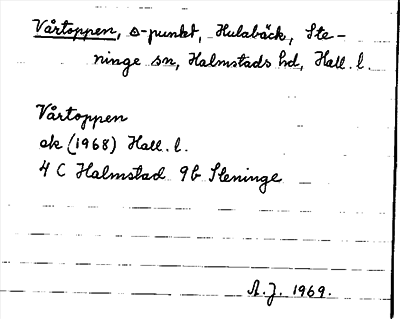 Vårtoppen, s-punkt, Hulabäck, Ste-
ninge sn, Halmstads hd, Hall. l.
Vårtoppen
ek (1968) Hall. l.
4 C Halmstad 9b Steninge
A.J. 1969.